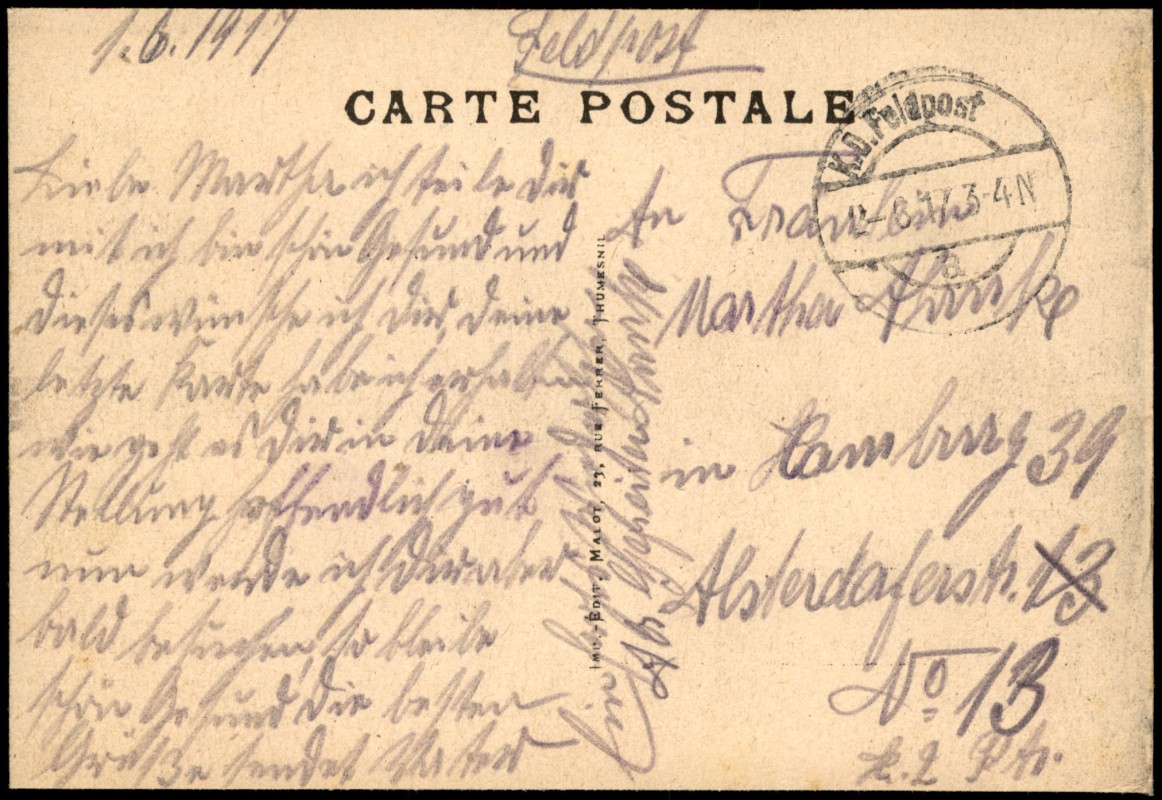 1.6.1917
Feldpost
CARTE POSTALE
K.D. Feldpost
3-4N
a
Liebe Martha ich teile dir
mit ich bin schön Gesund und
dieses wünsche ich dir, deine
letzte Karte habe ich erhalten
wie geht es dir in deine
Stellung hoffendlich gut
nun werde ich dir aber
bald besuchen, so bleibe
schön Gesund die besten
Grüße sendet Vater
IMP.-EDIT. MALOT, 23, RUE FERRER, THUMESNIL
Abs. Gefreiter
An
Martha
in Hamburg 39
Alsterdaferstr. 13
No 13